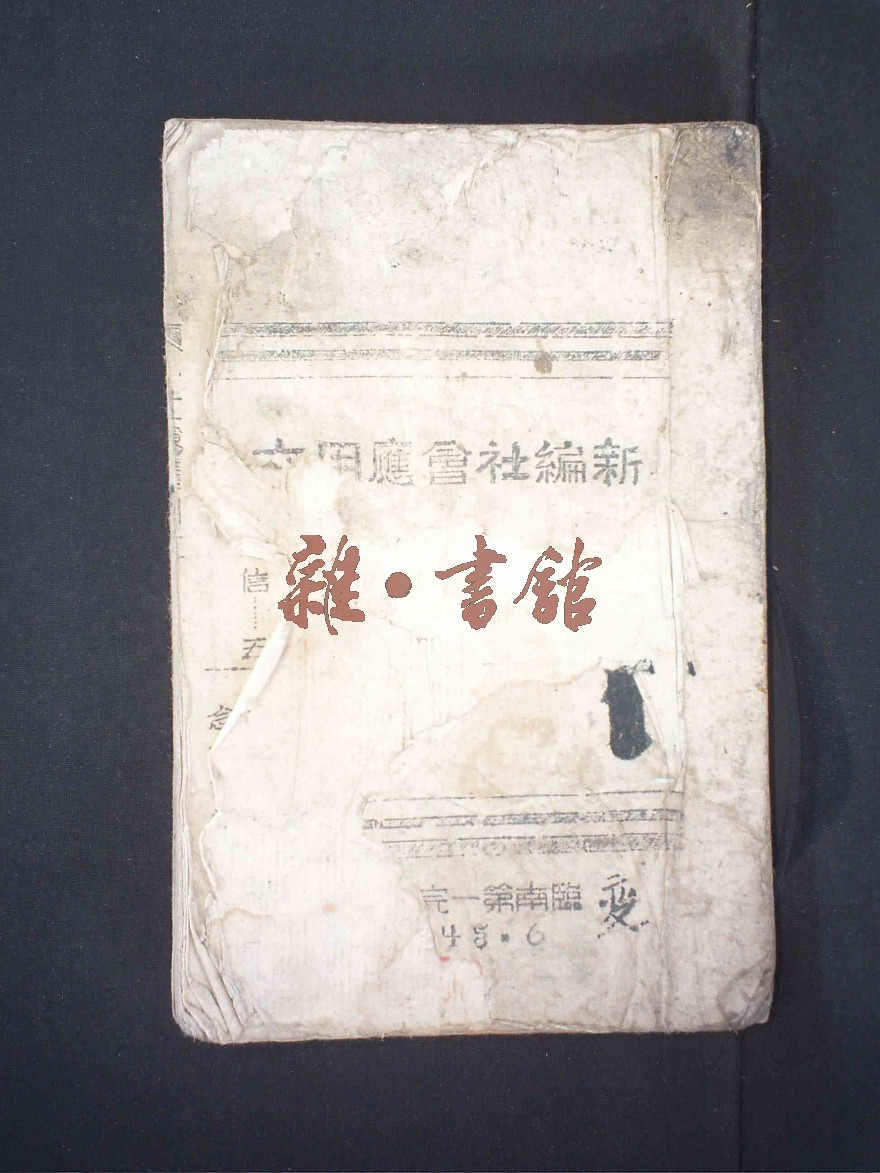 新編社會應用文
雜·書館
信……五
臨南第一完
45.6